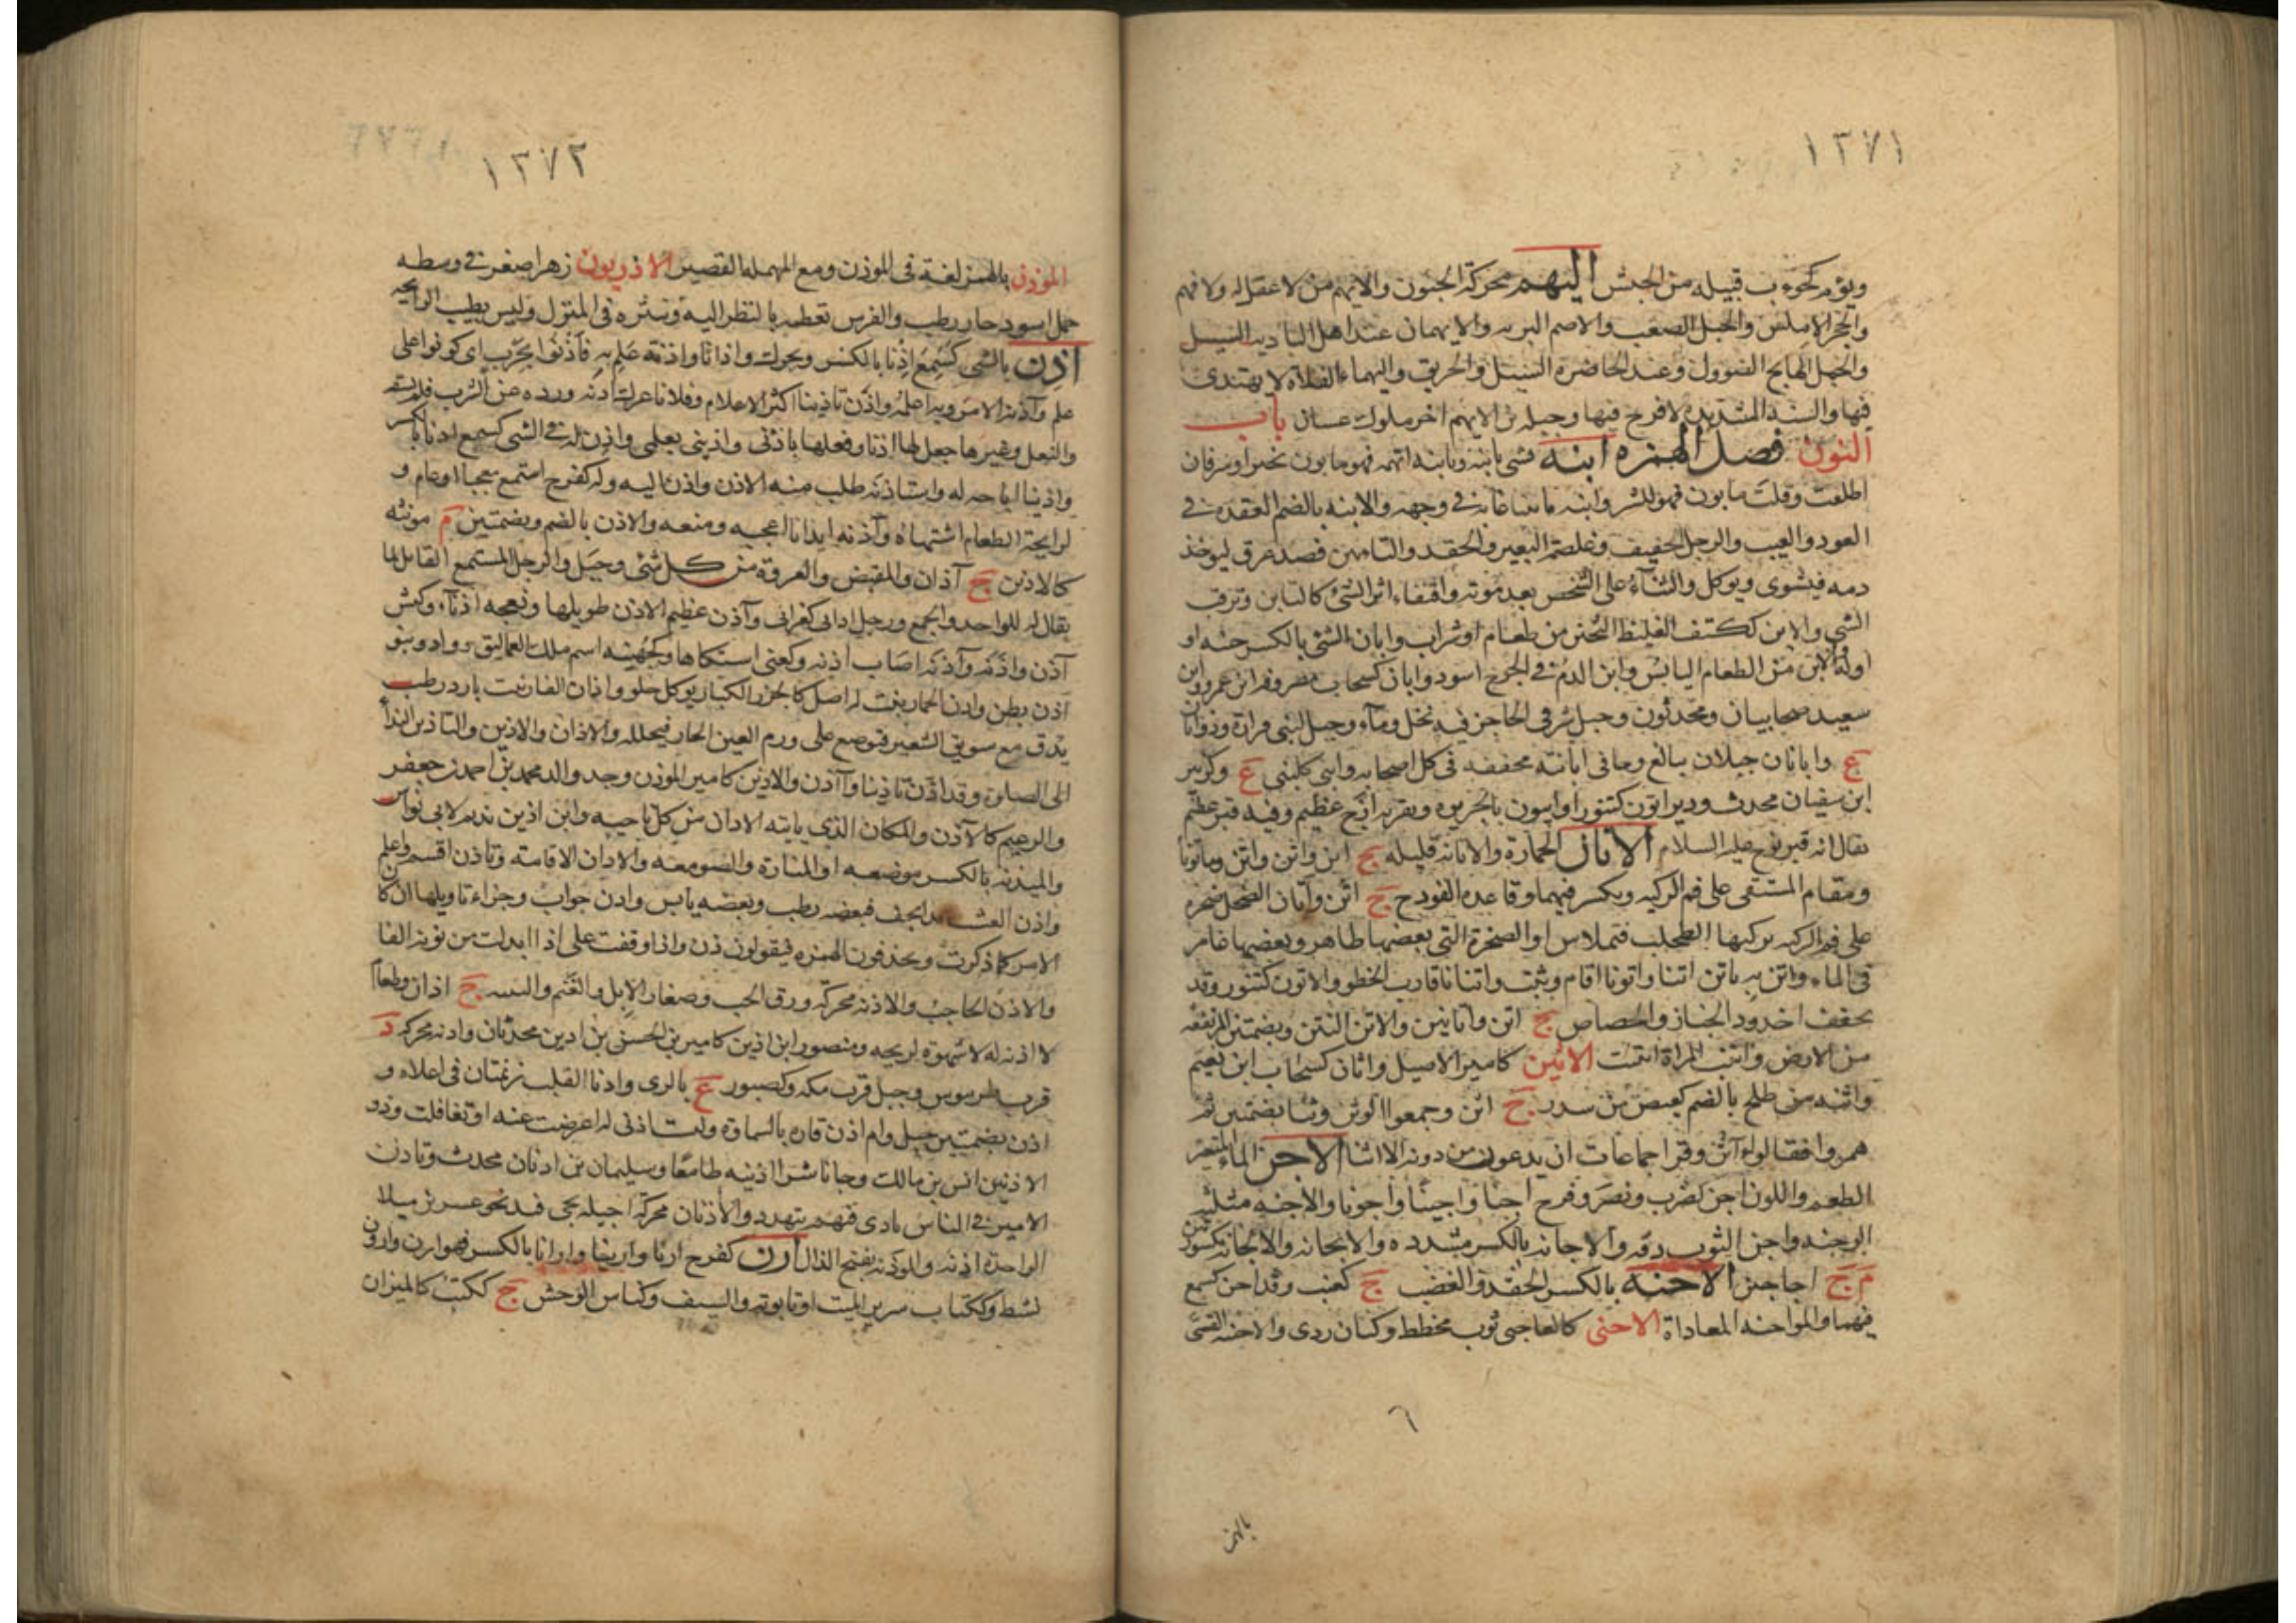 ١٣٧١
ويؤم كجوب قبيله من الحبش اليهم محركة الجنون والايهم من لا عقل له ولا فهم
والحجر الاملس والجبل الصعب والاصم البريه والايهمان عند اهل الباديه السيل
والجمل الهايج الصوول وعند الحاضرة السيل والحريق واليهماء الفلاة لا يهتدى
فيها والسنة الشديدة لا فرح فيها وجبلة بن الايهم اخر ملوك غسان باب
النون فصل الهمزه ابنه بشى يابنه ويابنه اتهمه فهو مابون بخير او شر فان
اطلقت وقلت مابون فهو للشر وابنه تابينا عابه فى وجهه والابنه بالضم العقده فى
العود والعيب والرجل الخفيف وغلصمة البعير والحقد والتابين فصد عرق ليوخذ
دمه فيشوى ويوكل والثناء على الشخص بعد موته واقتفاء اثر الشئ كالتابن وترقب
الشى والابن ككتف الغليظ الثخين من طعام او شراب وابان الشئ بالكسر حينه او
اوله والابن من الطعام اليابس وابن الدم فى الجرح اسود وابان كسحاب مصروفه ابن عمرو وابن
سعيد صحابيان ومحدثون وجبل شرقى الحاجز فيه نخل وماء وجبل لبنى فزارة وذو ابان
ع وابانان جبلان متالع وجا فى ابانته مخففه فى كل اصحابه وابنى كلبنى ع وكزبير
ابن سفيان محدث ودير ابون كتنور او ابيون بالجزيره وبقربه ازج عظيم وفيه قبر عظيم
يقال انه قبر نوح عليه السلام الاتان الحمارة والاتانه قليله ج اتن واتن واتن وماتونا
ومقام المستقى على فم الركيه ويكسر فيهما وقاعده الفودج ج اتن واتان الضحل صخره
على فم الركيه يركبها الطحلب فتملاس او الصخرة التى بعضها ظاهر وبعضها غامر
فى الماء واتن به ياتن اتنا واتونا اقام وثبت واتنانا قارب الخطو والاتون كتنور وقد
يخفف اخدود الخباز والجصاص ج اتن واتاتين والاتن النتن وبضمتين المرتفعه
من الارض واتنت المراة ايتنت الاثين كامير الاصيل واثان كسحاب ابن نعيم
واثنه من طلح بالضم كعيص من سدر ج اثن وجمعوا الوثن وثنا بضمتين ثم
همزوا فقالوا اثن وقرا جماعات ان يدعون من دونه الا اثنا الاجن الماء المتغير
الطعم واللون اجن كضرب ونصر وفرح اجنا واجينا واجونا والاجنه مثلثه
الوجنه واجن الثوب دقه والاجانه بالكسر مشدده والايجانه والانجانه مكسورتين
م ج اجاجين الاحنه بالكسر الحقد والغضب ج كعنب وقد احن كسمع
فيهما والمواحنه المعاداة الاخنى كالعاجى ثوب مخطط وكتان ردى والاخنيه القسى
٦
بالهمز
١٣٧٢
الموذن بالهمز لغة فى الموذن ومع المهمله القصير الاذريون زهر اصفر فى وسطه
خمل اسود حار رطب والفرس تعظمه بالنظر اليه وتنثره فى المنزل وليس بطيب الرايحه
اذن بالشى كسمع اذنا بالكسر ويحرك واذانا واذنة علم به فاذنوا بحرب اى كونوا على
علم واذنه الامر وبه اعلمه واذن تاذينا اكثر الاعلام وفلانا عرك اذنه ورده عن الشرب فلم يسقه
والنعل وغيرها جعل لها اذنا وفعلها باذنى واذينى بعلمى واذن له فى الشى كسمع اذنا بالكسر
واذينا اباحه له واستاذنه طلب منه الاذن واذن اليه وله كفرح استمع معجبا او عام و
لرايحة الطعام اشتهاه واذنه ايذانا اعجبه ومنعه والاذن بالضم وبضمتين م مونثه
كالاذين ج آذان والمقبض والعروة من كل شئ وجبل والرجل المستمع القابل لما
يقال له للواحد والجمع ورجل اذانى كغرابى وآذن عظيم الاذن طويلها ونعجه اذناء وكبش
آذن واذنه وآذنه اصاب اذنه وكعنى اشتكاها وكجهينه اسم ملك العماليق وواد وبنو
اذن بطن واذن الحمار نبت له اصل كالجزر الكبار يوكل حلو واذان الفار نبت بارد رطب
يدق مع سويق الشعير فيوضع على ورم العين الحار فيحلله والاذان والاذين والتاذين النداء
الى الصلوة وقد اذن تاذينا وآذن والاذين كامير الموذن وجد والد محمد بن احمد بن جعفر
والزعيم كالآذن والمكان الذى ياتيه الاذان من كل ناحيه وابن اذين نديم لابى نواس
والميذنه بالكسر موضعه او المنارة والصومعه والاذان الاقامة وتاذن اقسم واعلم
واذن العشب بدا يجف فبعضه رطب وبعضه يابس واذن جواب وجزاء تاويلها ان كان
الامر كما ذكرت ويحذفون الهمزه فيقولون ذن واذا وقفت على اذا ابدلت من نونه الفا
والاذن الحاجب والاذنه محركه ورق الحب وصغار الابل والغنم والتبنه ج اذان وطعام
لا اذنه له لا شهوة لريحه ومنصور ابن اذين كامير بن الحسن بن اذين محدثان واذنه محركه د
قرب طرسوس وجبل قرب مكه وكصبور ع بالرى واذنا القلب زنمتان فى اعلاه و
اذن بضمتين جبل وام اذن قاره بالسماوة ولبست اذنى له اعرضت عنه او تغافلت وذو
الاذنين انس بن مالك وجا ناشرا اذنيه طامعا وسليمان بن اذنان محدث وتاذن
الامير فى الناس نادى فيهم بتهدد والاذنان محركه اجيله بحمى فيد نحو عشرين ميلا
الواحدة اذنه والموذنه بفتح الذال ارن كفرح ارنا وارينا وارانا بالكسر فهو ارن وارون
نشط وككتاب سرير الميت او تابوته والسيف وكناس الوحش ج ككتب كالميزان